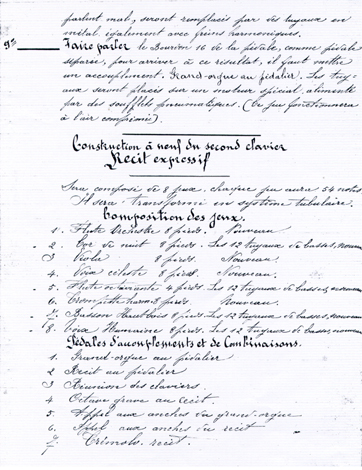 parlent mal, seront remplacés par des tuyaux en
métal également avec freins harmoniques.
9º Faire parler le Bourdon 16 de la pédale, comme pédale
séparée, pour arriver à ce résultat, il faut mettre
un accouplement. Grand-orgue au pédalier. Les tuy-
aux seront placés sur un moteur spécial alimenté
par des soufflets pneumatiques. (Ce jeu fonctionnera
à l'air comprimé).
Construction à neuf du second clavier
Récit expressif
Sera composé de 8 jeux, chaque jeu aura 54 notes
Il sera transformé en système tubulaire.
Composition des jeux.
1. Flûte 8 pieds. Nouveau
2. Cor de nuit 8 pieds. Les 12 tuyaux de basses, nouveau
3 Viola 8 pieds. Nouveau.
4. Voix céleste 8 pieds. Nouveau.
5. Flûte octaviante 4 pieds. Les 12 tuyaux de basses, nouveau
6. Trompette harm. 8 pieds. Nouveau.
7. Basson Hautbois 8 pieds. Les 12 tuyaux de basses, nouveau
8. Voix Humaine 8 pieds. Les 12 tuyaux de basses, nouveau
Pédales d'accouplements et de Combinaisons.
1. Grand-orgue au pédalier
2 Récit au pédalier
3 Réunion des claviers.
4 Octave grave au récit.
5. Appel aux anches du grand-orgue
6. Appel aux anches du récit
7. Trémolo récit.